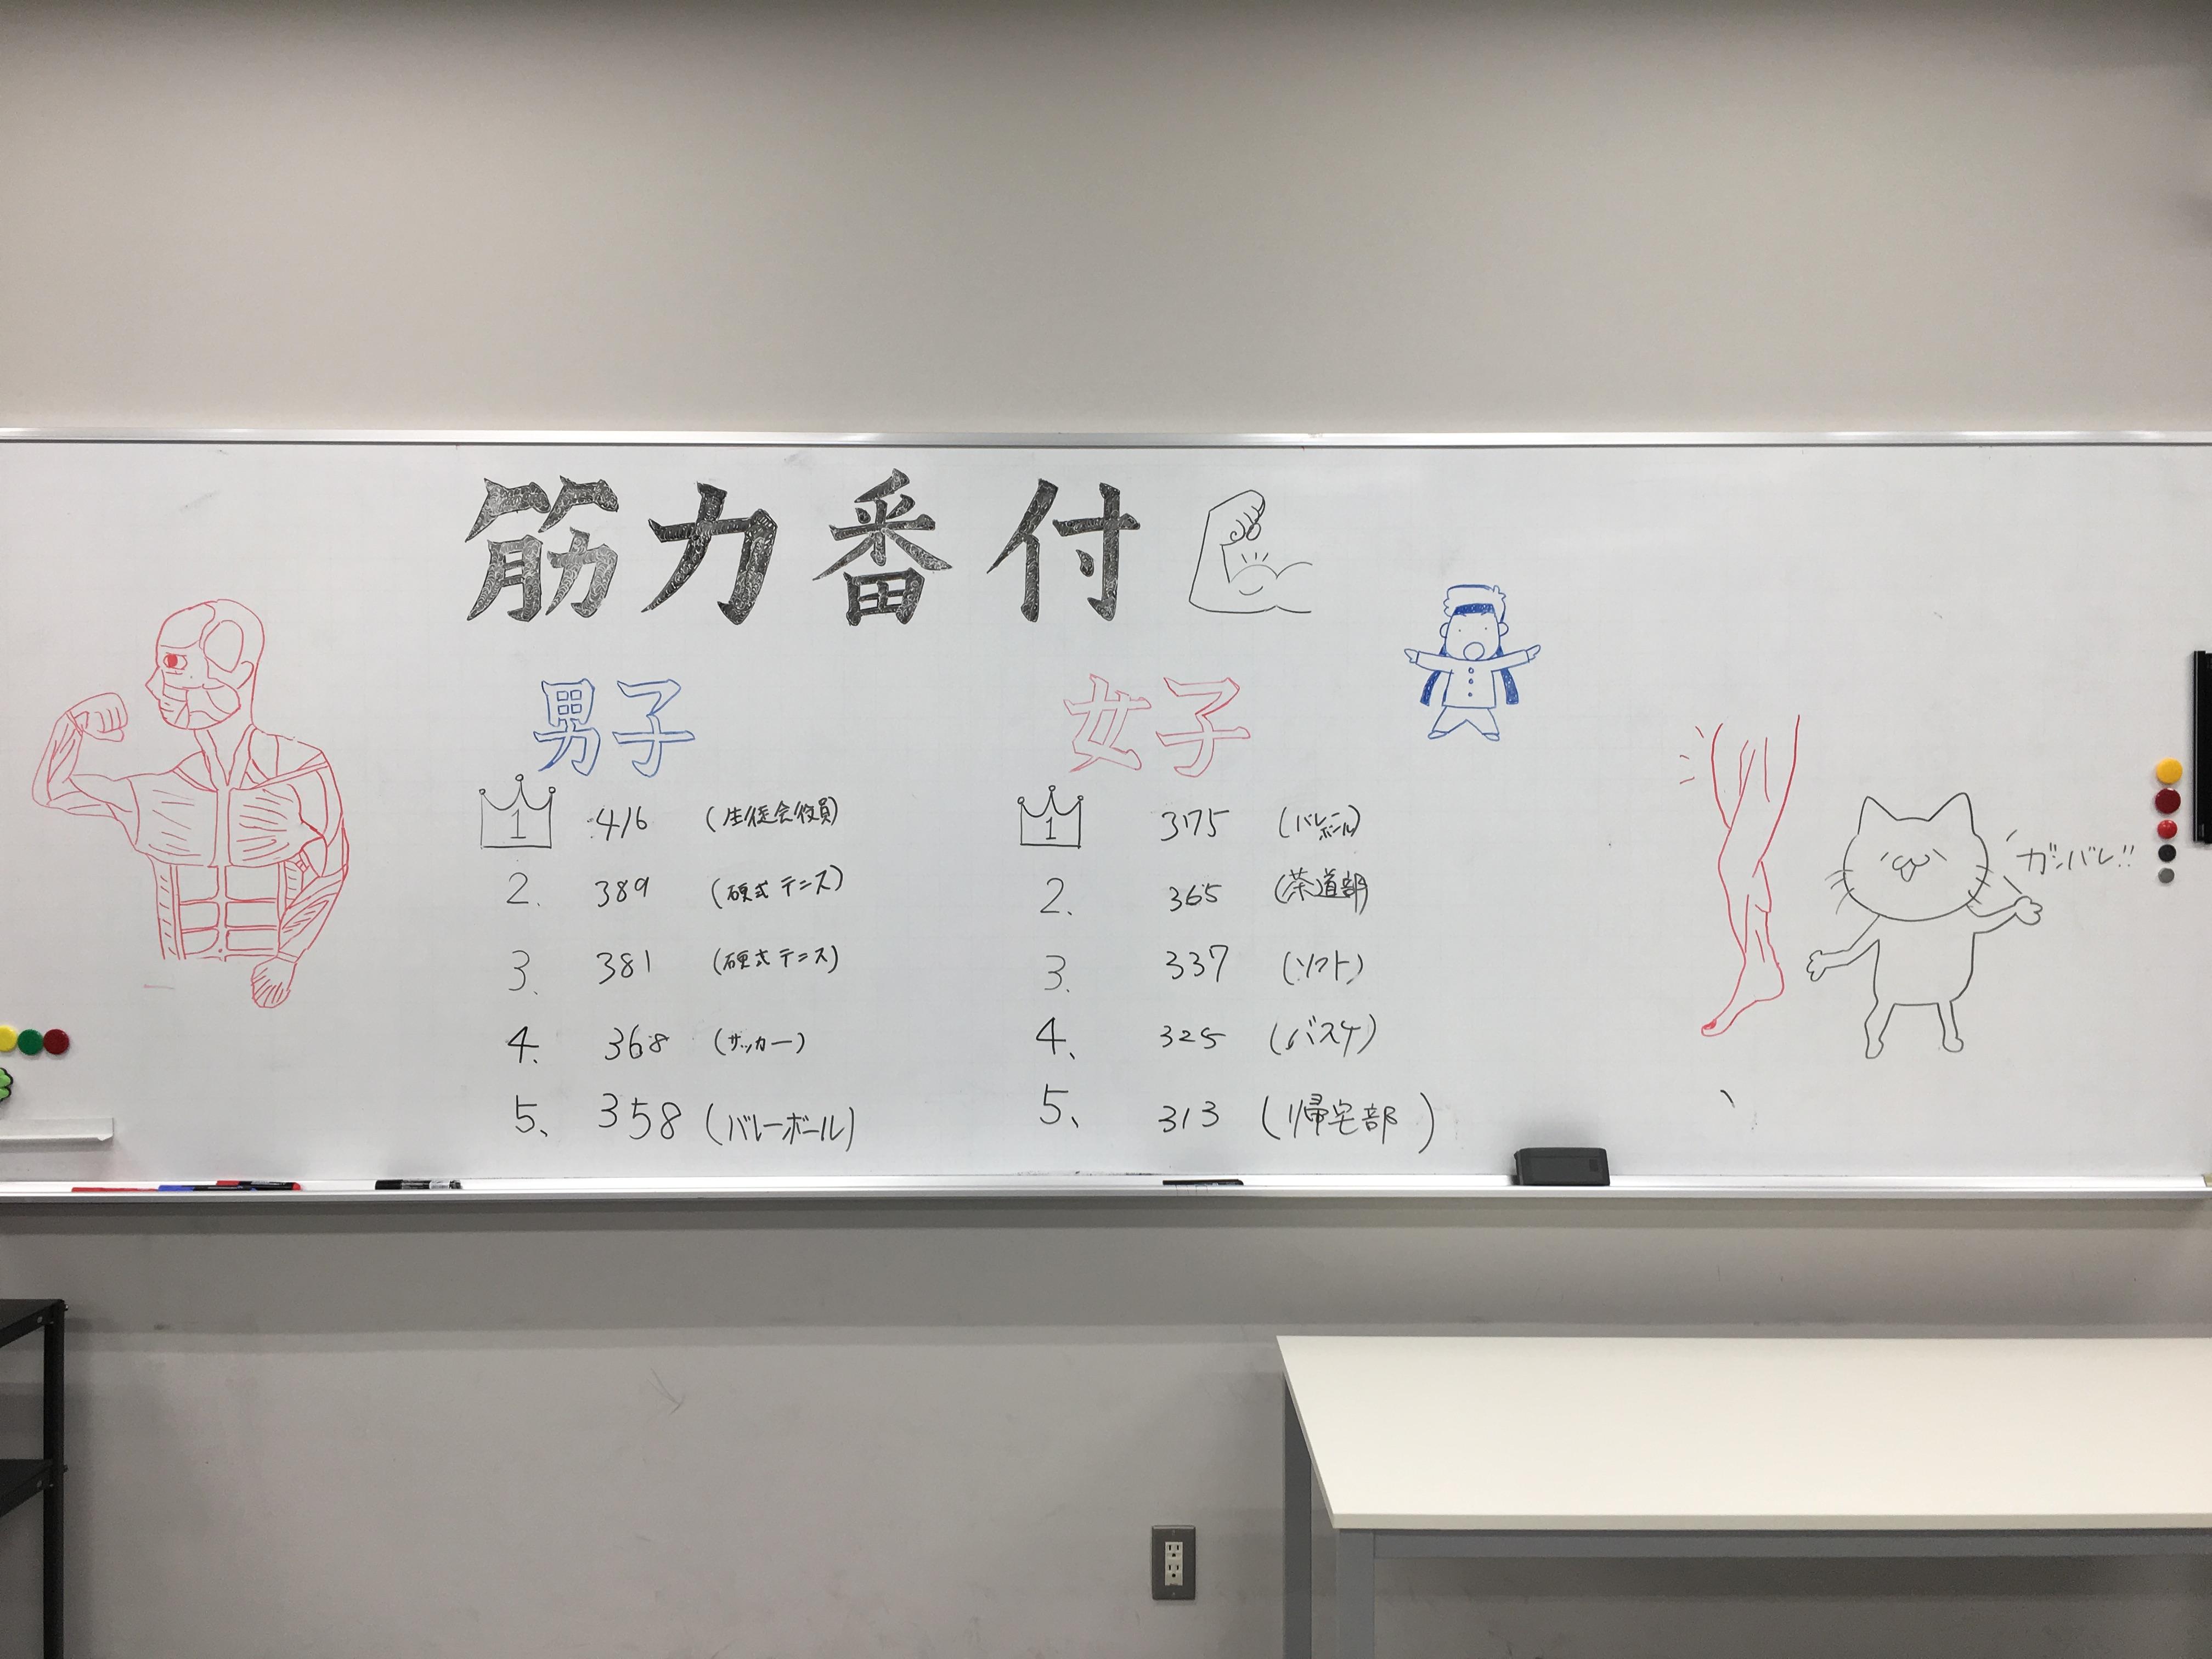 筋力番付
男子
1 416 (生徒会役員)
2. 389 (硬式テニス)
3. 381 (硬式テニス)
4. 368 (サッカー)
5、 358 (バレーボール)
女子
1 375 (バレーボール)
2. 365 (茶道部)
3. 337 (ソフト)
4、 325 (バスケ)
5、 313 (帰宅部)
ガンバレ!!